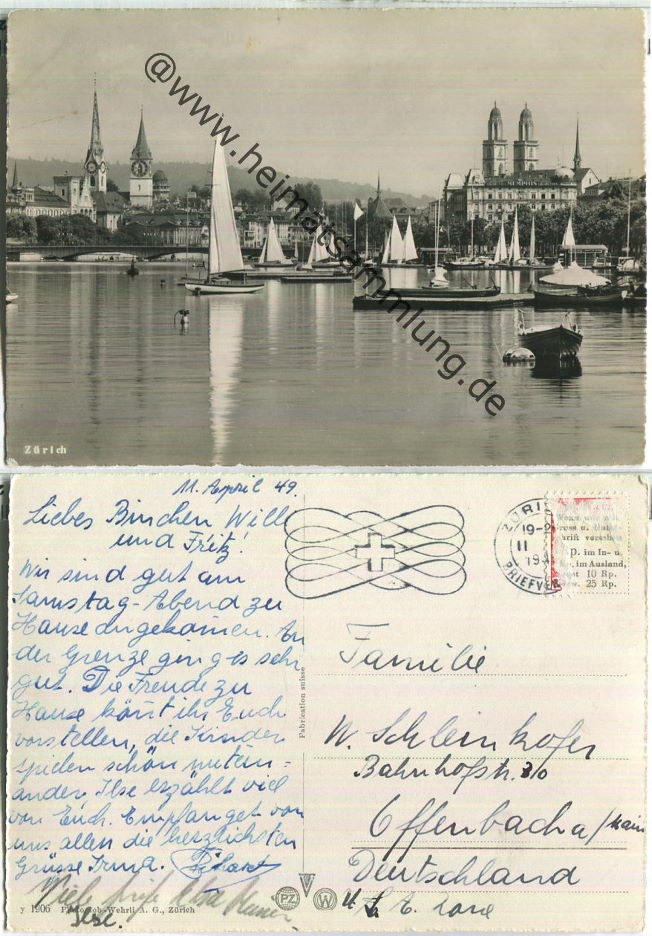 @www.heimatsammlung.de
MEMPHIS
Zürich
11. April 49.
Liebes Binchen Willi
und Fritz!
Wir sind gut am
Samstag-Abend zu
Hause angekommen. An
der Grenze ging es sehr
gut. Die Freude zu
Hause könnt ihr Euch
vorstellen, die Kinder
spielen schön mitein-
ander. Ilse erzählt viel
von Euch. Empfanget von
uns allen die herzlichsten
Grüsse Irma.
Viele
Ilse.
y 1906 Photo Rob-Wehrli A. G., Zürich
Fabrication suisse
PZ W
ZÜRICH
19-
11
BRIEFVER
p. im In- u.
p. im Ausland,
10 Rp.
25 Rp.
Familie
W. Schleinkofer
Bahnhofstr. 30
Offenbach a/Main
Deutschland